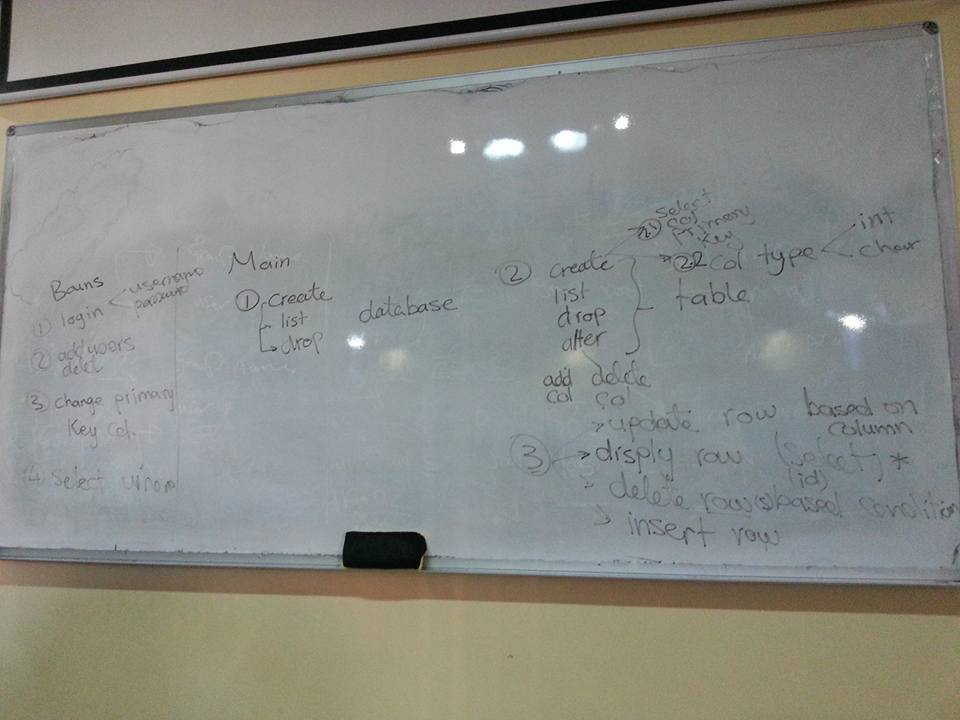 Bouns
① login username
password
② add users
delet
③ change primary
Key col.
④ Select where
Main
① create
list
drop
database
② create
list
drop
alter
table
2.1 select
col
primary
key
2.2 col type int
char
add
col
delete
col
③
update row based on
column
disply row (Selcet) *
(id)
delete row(s) based condition
insert row